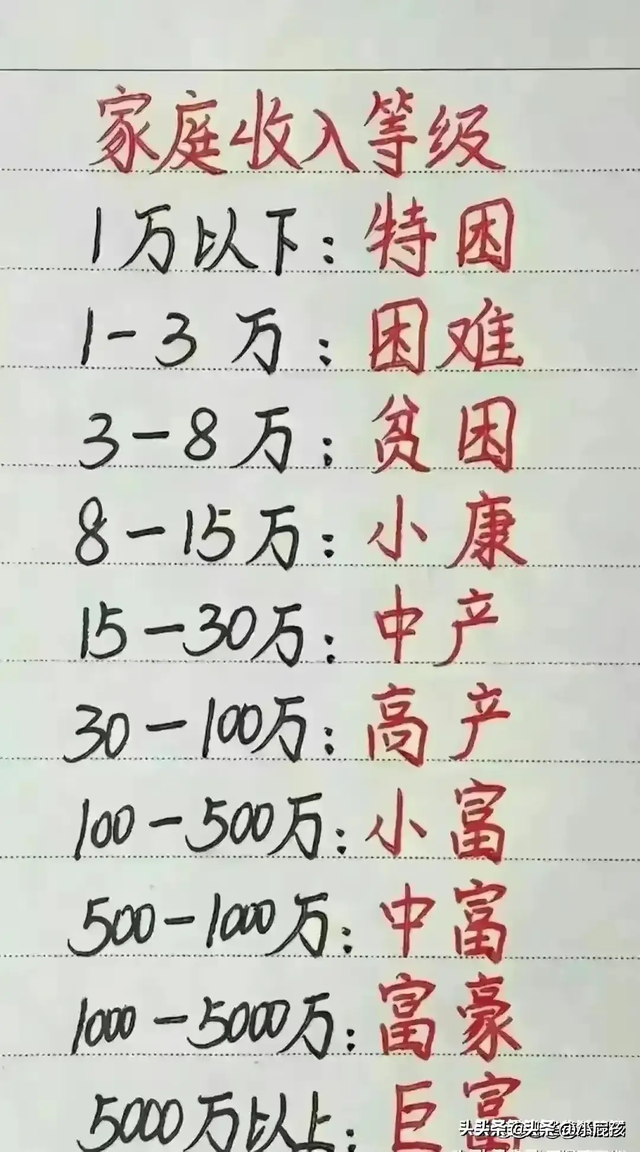 家庭收入等级
1万以下：特困
1-3万：困难
3-8万：贫困
8-15万：小康
15-30万：中产
30-100万：高产
100-500万：小富
500-1000万：中富
1000-5000万：富豪
5000万以上：巨富